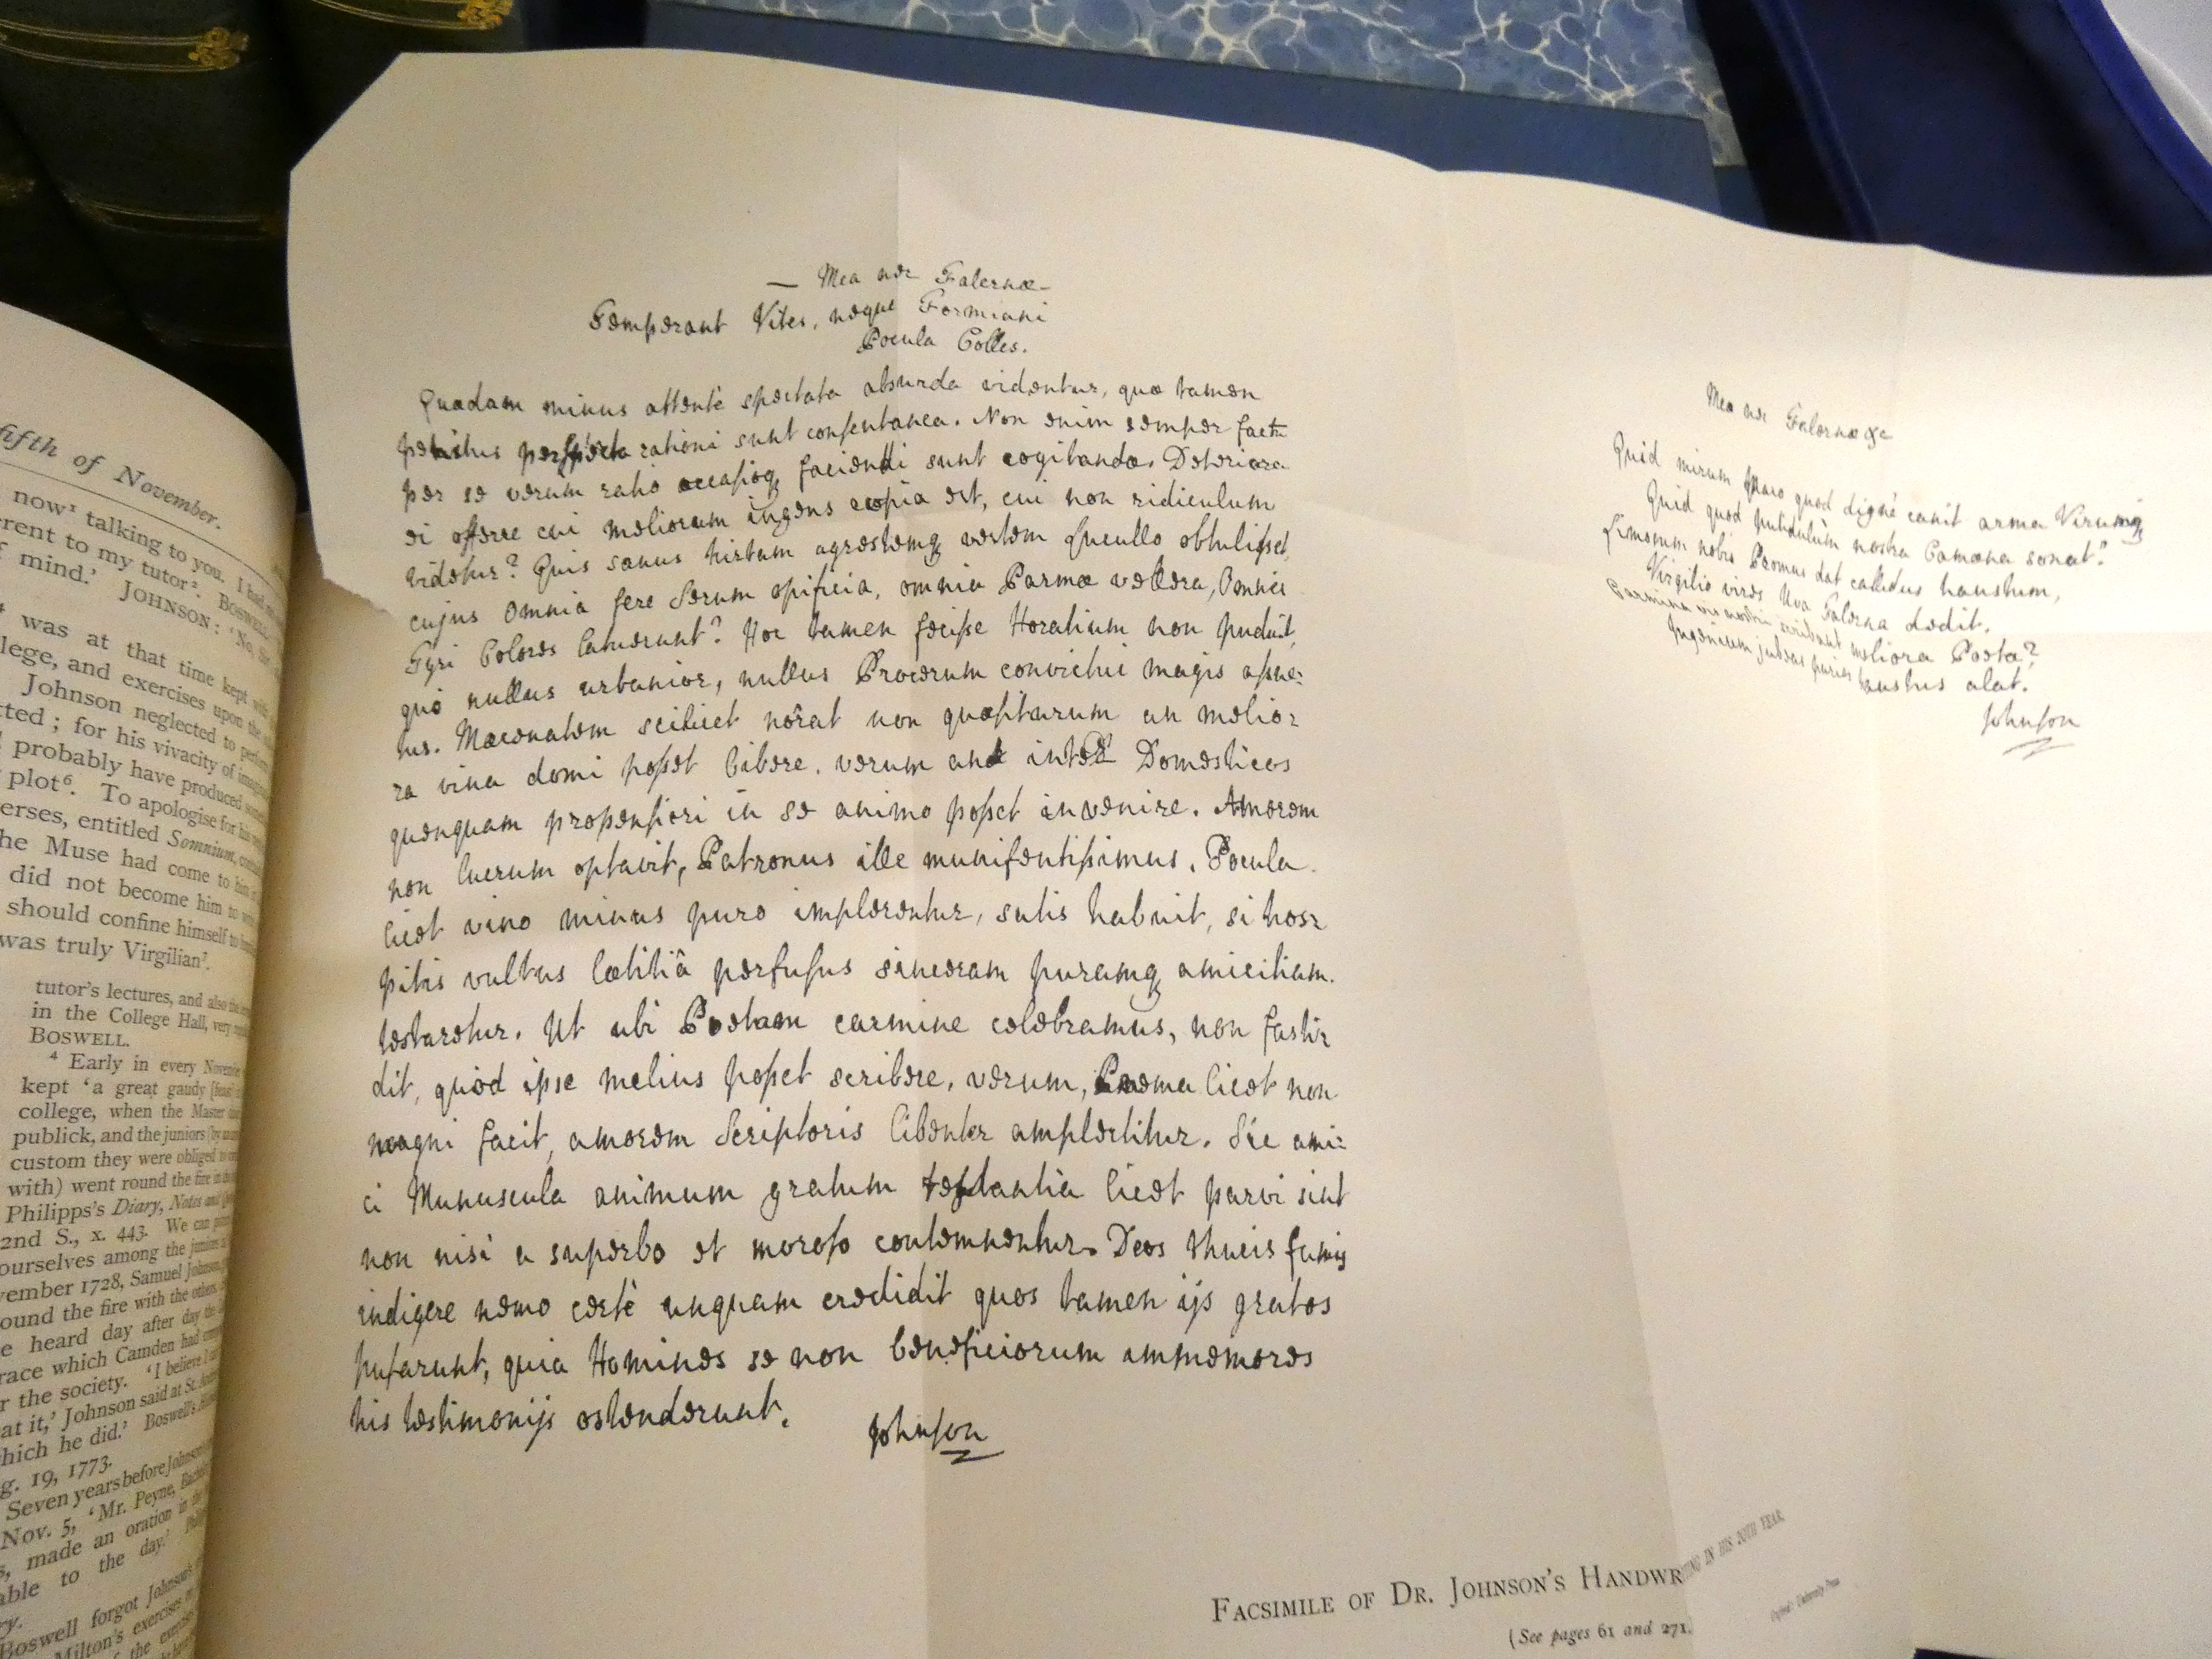 fifth of November.
now¹ talking to you. I had
rent to my tutor². BOSWELL
mind.' JOHNSON: 'No, Sir
was at that time kept with
lege, and exercises upon the
Johnson neglected to perform
cted; for his vivacity of
probably have produced
plot⁶. To apologise for his
erses, entitled Somnium,
he Muse had come to him
did not become him to
should confine himself to
was truly Virgilian⁷.
tutor's lectures, and also the
in the College Hall, very
BOSWELL.
⁴ Early in every November
kept 'a great gaudy [feast]
college, when the Master
publick, and the juniors (by
custom they were obliged to
with) went round the fire in the
Philipps's Diary, Notes and
2nd S., x. 443. We can
ourselves among the juniors
vember 1728, Samuel Johnson,
ound the fire with the others.
e heard day after day the
race which Camden had
r the society. 'I believe I
at it,' Johnson said at St.
which he did.' Boswell's
g. 19, 1773.
Seven years before Johnson
Nov. 5, 'Mr. Peyne, Bachelor
s, made an oration in the
able to the day.'
ry.
Boswell forgot Johnson's
Milton's exercises
the exercise
— Mea nec Falernæ
Temperant Vites, neque Formiani
Pocula Colles.
Quædam minus attentè spectata absurda videntur, quæ tamen
penitus perspecta rationi sunt consentanea. Non enim semper facta
per se verum ratio occasioq; faciendi sunt cogitanda. Deteriora
ei offerre cui meliorum ingens copia est, cui non ridiculum
videtur? Quis sanus hirtam agrestemq; vestem Lucullo obtulisset,
cujus omnia fere Serum opificia, omnia Parmæ vellera, Omnes
Tyri Colores latuerunt? Hoc tamen fecisse Horatium non puduit,
quo nullus urbanior, nullus Procerum convictui magis assue=
tus. Mæcenatem scilicet nôrat non quæsiturum an melio=
ra vina domi posset bibere, verum an inter Domesticos
quenquam propensiori in se animo posset invenire. Amorem
non lucrum optavit, Patronus ille munifentissimus. Pocula
licet vino minus puro implerentur, satis habuit, si hos=
pitis vultus lætitiâ perfusus sinceram puramq; amicitiam
testaretur. Ut ubi Poetam carmine celebramus, non fasti=
dit, quod ipse melius posset scribere, verum, Poema licet non
magni facit, amorem Scriptoris libenter amplectitur. Sic ami=
ci Munuscula animum gratum testantia licet parvi sint
non nisi a superbo et moroso contemnentur. Deos thuris fumis
indigere nemo certè unquam credidit quos tamen ijs gratos
putarunt, quia Homines se non beneficiorum immemores
his testimonijs ostenderunt.
Johnson
Mea nec Falernæ &c
Quid mirum Maro quod dignè canit arma Virumq;
Quid quod putidulùm nostra Camæna sonat?
Limosum nobis Promus dat callidus haustum,
Virgilio vires Uva Falerna dedit.
Carmina vis nostri scribant meliora Poetæ?
Ingenium jubeas purior haustus alat.
Johnson
FACSIMILE OF DR. JOHNSON'S HANDWRITING IN HIS 20TH YEAR.
Oxford: University Press
(See pages 61 and 271.